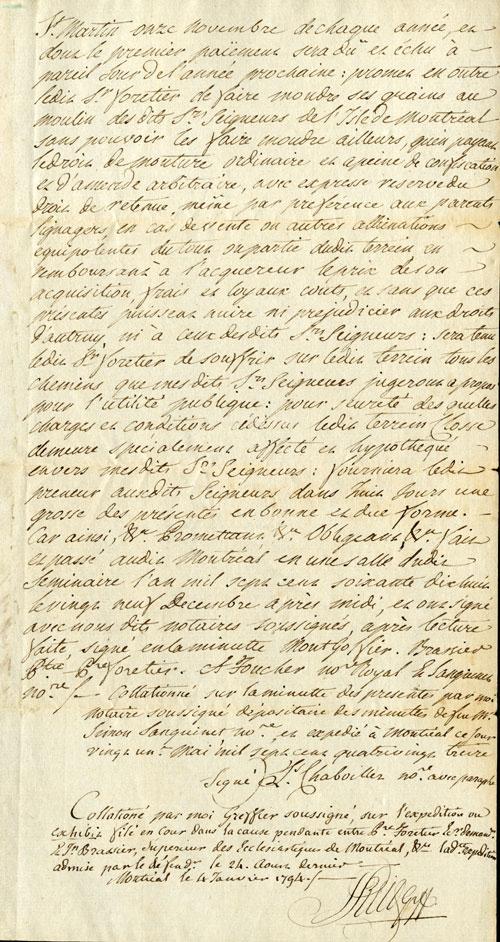 St. Martin onze novembre de chaque année, et
dont le premier païement sera dû et échu à
pareil Jour de l'année prochaine : promet en outre
ledit Sr. foretier de faire moudre ses grains au
moulin desdits Srs. Seigneurs de l'Isle de Montréal
sans pouvoir les faire moudre ailleurs, qu'en payant
le droit de mouture ordinaire et à peine de confiscation
et d'amende arbitraire, avec expresse reserve du
droit de retenue, même par preference aux parents
lignagers, en cas de vente ou autres alliénations
équipolentes du tout ou partie dudit terrein en
remboursant à l'acquereur le prix de son
acquisition frais et loyaux couts, et sans que ces
présentes puissent nuire ni préjudicier aux droits
d'autruy, ni à ceux desdits Srs. Seigneurs : sera tenu
ledit Sr. foretier de souffrir sur ledit terrein tous les
chemins que mesdits Srs. Seigneurs jugeront à propos
pour l'utilité publique : pour seureté des quelles
charges et conditions cidessus ledit terrein Cosse
demeure spécialement affecté et hypothéqué
envers mesdits Srs. Seigneurs : fournira ledit
preneur auxdits Seigneurs dans huit Jours une
grosse des présentes en bonne et due forme. -
Car ainsi, &ca. Promettant &ca. Obligeant, &ca. fait
et passé audit Montréal en une salle dudit
Seminaire l'an mil sept cent soixante dix huit
le vingt neuf Decembre après midi, et ont signé
avec nous dits notaires soussignés, après lecture
faite, signé en la minute Montgolfier. Brassier
Ptre. Pre. foretier. A. Foucher nore. Royal & Sanguinet
nore. /- Collationné sur la minutte des présentes par moi
notaire soussigné dépositaire des minutes de feu Mr.
Simon Sanguinet nore. et expedié à Montréal ce Jour
vingt un. Mai mil sept cent quatrevingt treize
Signé Ls. Chaboillez nore. avec paraphe
Collationé par moi Greffier soussigné, sur l'expedition ou
exhibit filé en Cour dans la cause pendante entre Pre. Foretier demandr.
& Jn. Brassier, Superieur des Ecclesiastiques de Montréal, &ca. ladte. Expedition
admise par le défendr. le 24. Aout dernier
Montréal le 4 Janvier 1794./